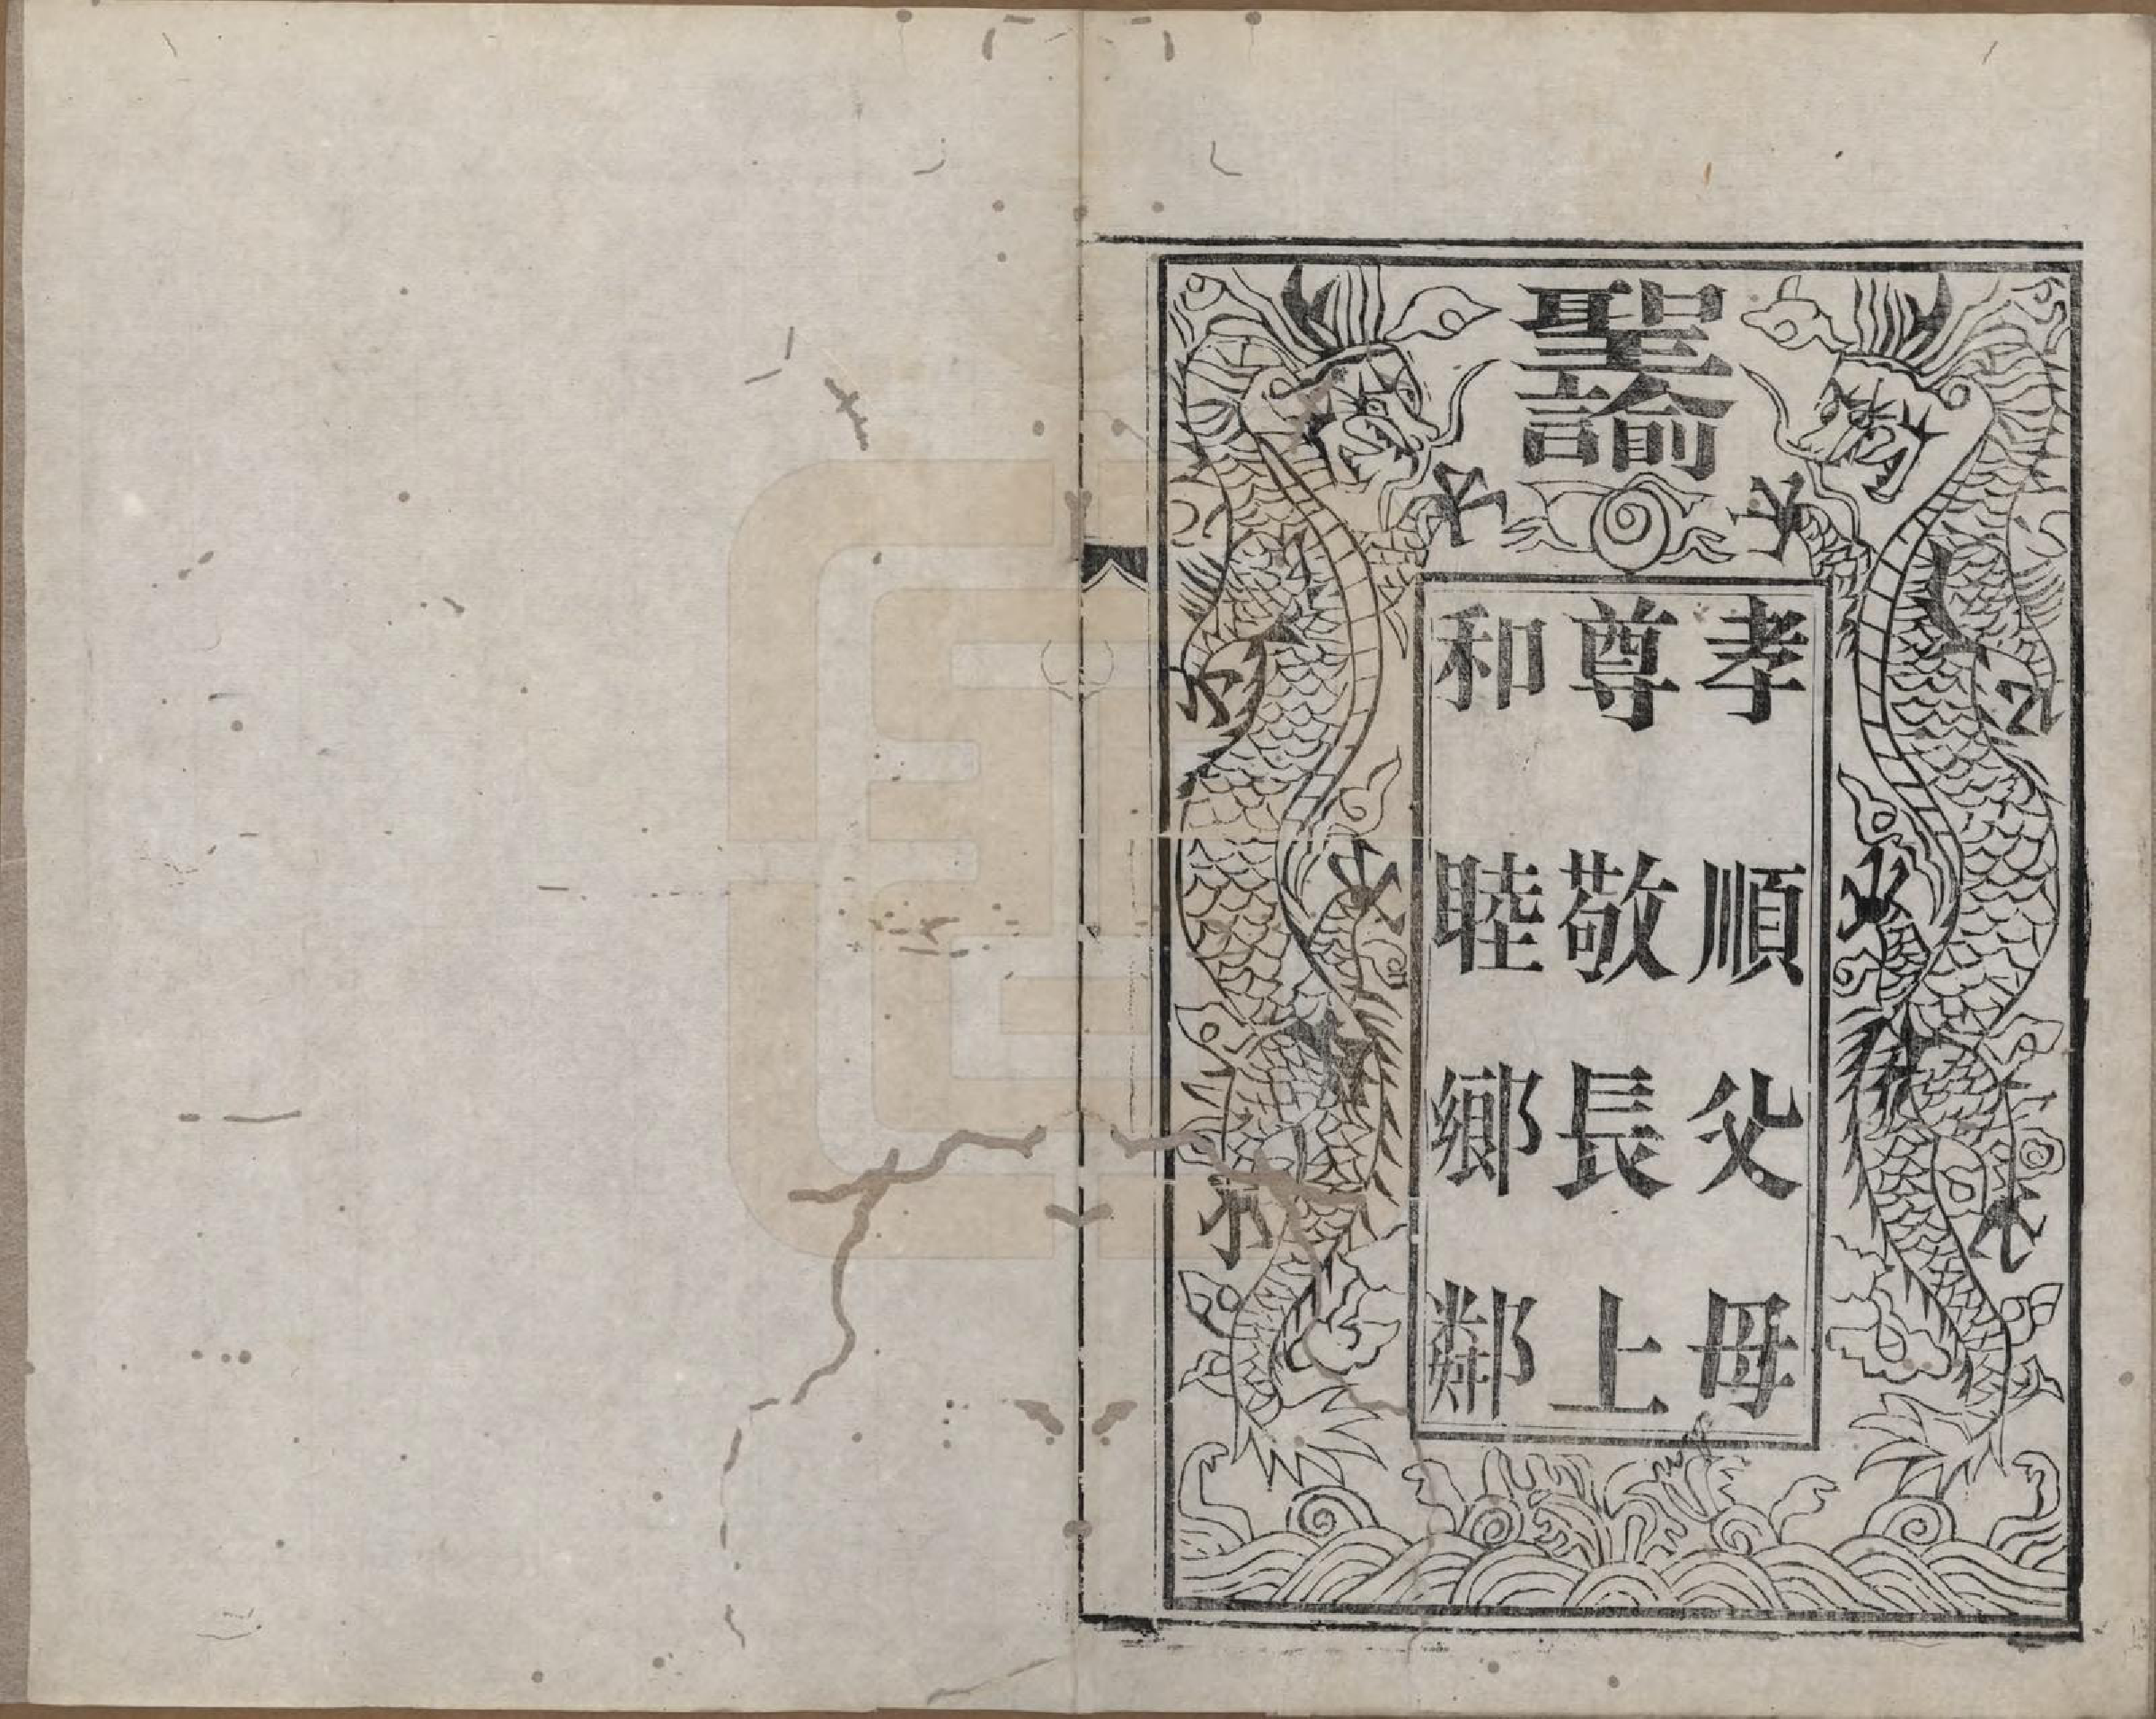 聖諭
孝順父母
尊敬長上
和睦鄉鄰